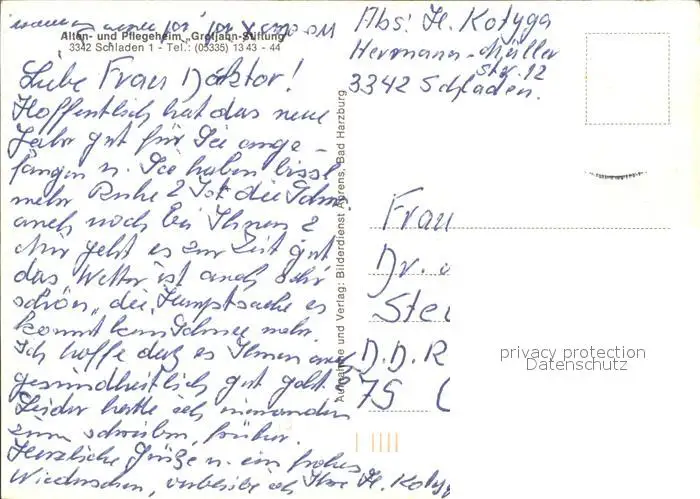 Alten- und Pflegeheim „Grotjahn-Stiftung"
3342 Schladen 1 - Tel.: (05335) 13 43 - 44
Abs: H. Kotyga
Hermann-Müller
Str. 12
3342 Schladen.
Liebe Frau Doktor!
Hoffentlich hat das neue
Jahr gut für Sie ange-
fangen u. Sie haben bissl
mehr Ruhe? Ist die
auch noch bei Ihnen?
Mir geht es zur Zeit gut
das Wetter ist auch sehr
schön, die Hauptsache es
kommt kein Schnee mehr.
Ich hoffe daß es Ihnen auch
gesundheitlich gut geht.
Leider hatte ich niemanden
zum schreiben, früher.
Herzliche Grüße u. ein frohes
Wiedersehen, verbleibe ich Ihre H. Kotyg
Aufnahme und Verlag: Bilderdienst Ahrens, Bad Harzburg
Frau
Dr.
Stei
D.D.R
75
privacy protection
Datenschutz